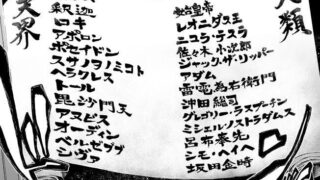 人類
始皇帝
レオニダス王
ニコラ・テスラ
佐々木小次郎
ジャック・ザ・リッパー
アダム
雷電為右衛門
沖田総司
グレゴリー・ラスプーチン
ミシェル・ノストラダムス
呂布奉先
シモ・ヘイヘ
坂田金時
天界
釈迦
ロキ
アポロン
ポセイドン
スサノヲノミコト
ヘラクレス
トール
毘沙門天
アヌビス
オーディン
ベルゼブブ
シヴァ